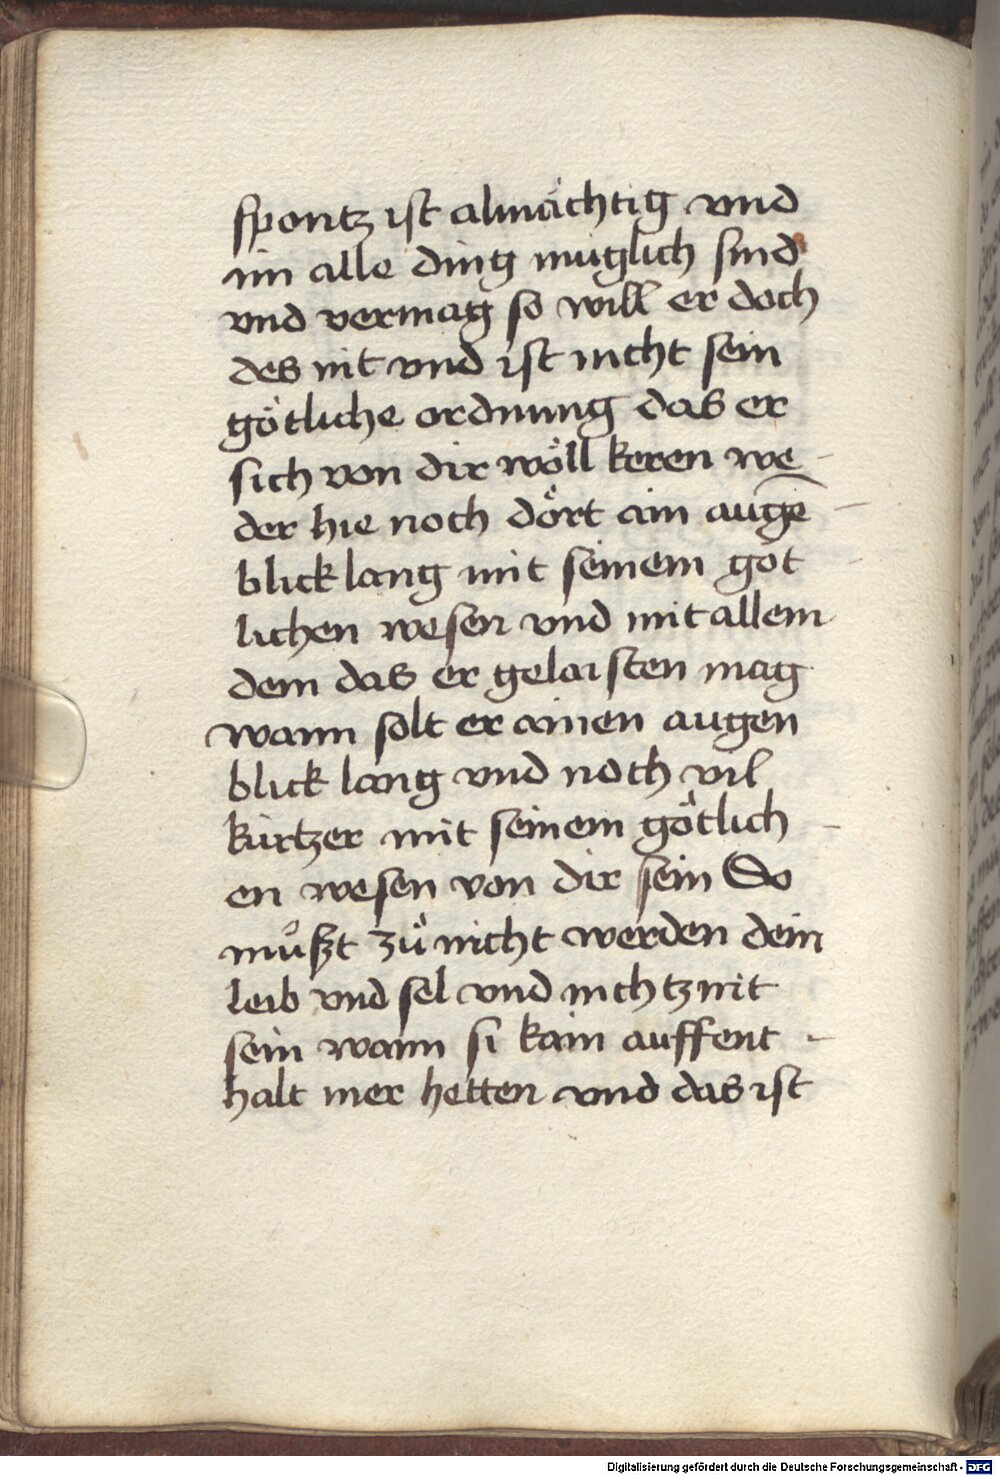 spontz ist almächtig vnd
im alle ding muglich sind
vnd vermag so will er doch
des nit vnd ist nicht sein
götliche ordnung das er
sich von dir wöll keren we
der hie noch dört ain augē
blick lang mit seinem göt
lichen wesen vnd mit allem
dem das er gelaisten mag
wann solt er ainen augen
blick lang vnd noch vil
kürtzer mit seinem götlich
en wesen von dir sein So
muͦßt zuͦ nicht werden dein
leib vnd sel vnd nichtz nit
sein wann si kain auffent
halt mer hetten vnd das ist
Digitalisierung gefördert durch die Deutsche Forschungsgemeinschaft - DFG